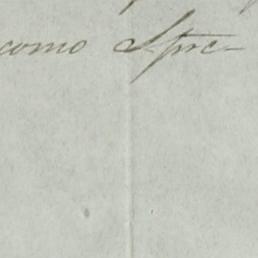 como Spre-